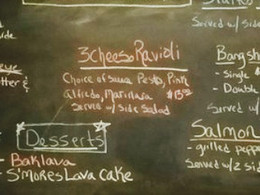 Served w/ Side
3 Cheese Ravioli
Choice of Sauce Pesto, Pink
Alfredo, Marinara
Served w/ Side Salad
Bangs
- Single
- Double
Served w/
Desserts
- Baklava
- S'mores Lava Cake
Salmon
- grilled pepp
Served w/ 2 sid